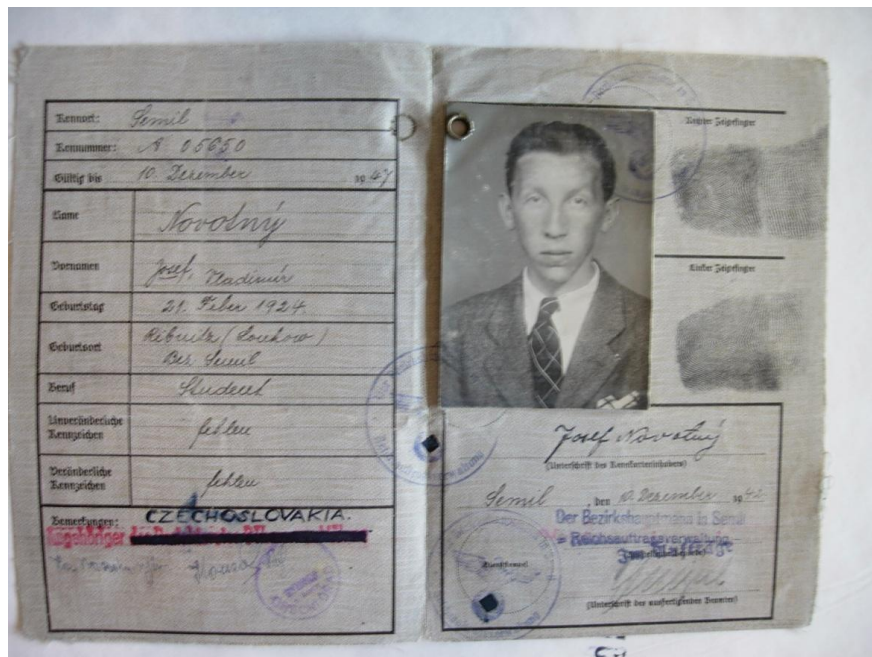 Kennort: Semil
Kennummer: A 05650
Gültig bis 10. Dezember 1947
Name Novotný
Vornamen Josef, Vladimír
Geburtstag 21. Feber 1924.
Geburtsort Ribnitz (Louhow)
Bez. Semil
Beruf Student
Unveränderliche Kennzeichen fehlen
Veränderliche Kennzeichen fehlen
Bemerkungen: CZECHOSLOVAKIA.
Angehöriger
Rechter Zeigefinger
Linker Zeigefinger
Josef Novotný
(Unterschrift des Kennkarteninhabers)
Semil, den 10. Dezember 1942
Der Bezirkshauptmann in Semil
- Reichsauftragsverwaltung
Im Auftrage
Dienststempel
(Unterschrift des ausfertigenden Beamten)